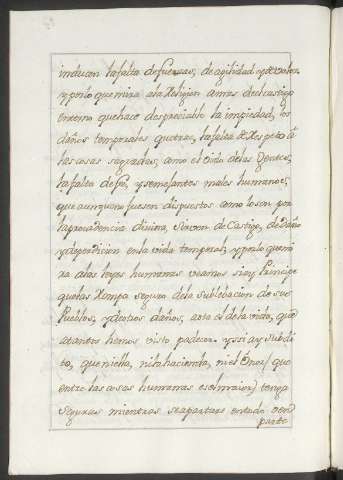 inducen la falta de fuerzas, de agilidad y de valor
y por lo que mira a la Religion a mas del castigo
eterno que hace despreciable la impiedad, los
daños temporales que trae, la falta de Respeto â
las cosas sagradas, como el odio de las Gentes,
la falta de fé, y semejantes males humanos,
que aunque no fuesen dispuestos como lo son por
la providencia divina, sirven de Castigo, de daño
y de perdicion en la vida temporal; y por lo que mi
ra a las leyes humanas veamos si ay Principe
que las Rompa seguro de la sublebacion de sus
Pueblos, y de otros daños, asta el de la vida, que
a tantos hemos visto padecer. y si ay subdi
to, que ni ella, ni la hacienda, ni el Onor (que
entre las cosas humanas es el maior) tenga
seguras mientras se apartare en todo, o en
parte